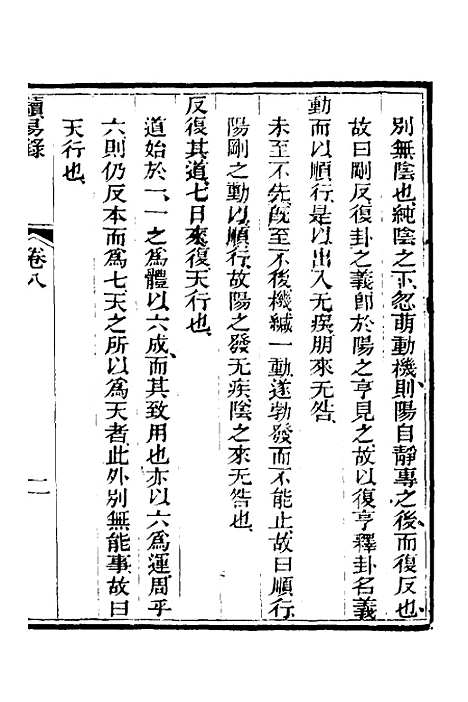 別無陰也純陰之下忽萌動機則陽自靜專之後而復反也
故曰剛反復卦之義卽於陽之亨見之故以復亨釋卦名義
動而以順行是以出入无疾朋來无咎
未至不先旣至不後機緘一動遂勃發而不能止故曰順行
陽剛之動以順行故陽之發无疾陰之來无咎也
反復其道七日來復天行也
道始於一一之爲體以六成而其致用也亦以六爲運周乎
六則仍反本而爲七天之所以爲天者此外別無能事故曰
天行也
讀易錄
卷八
二